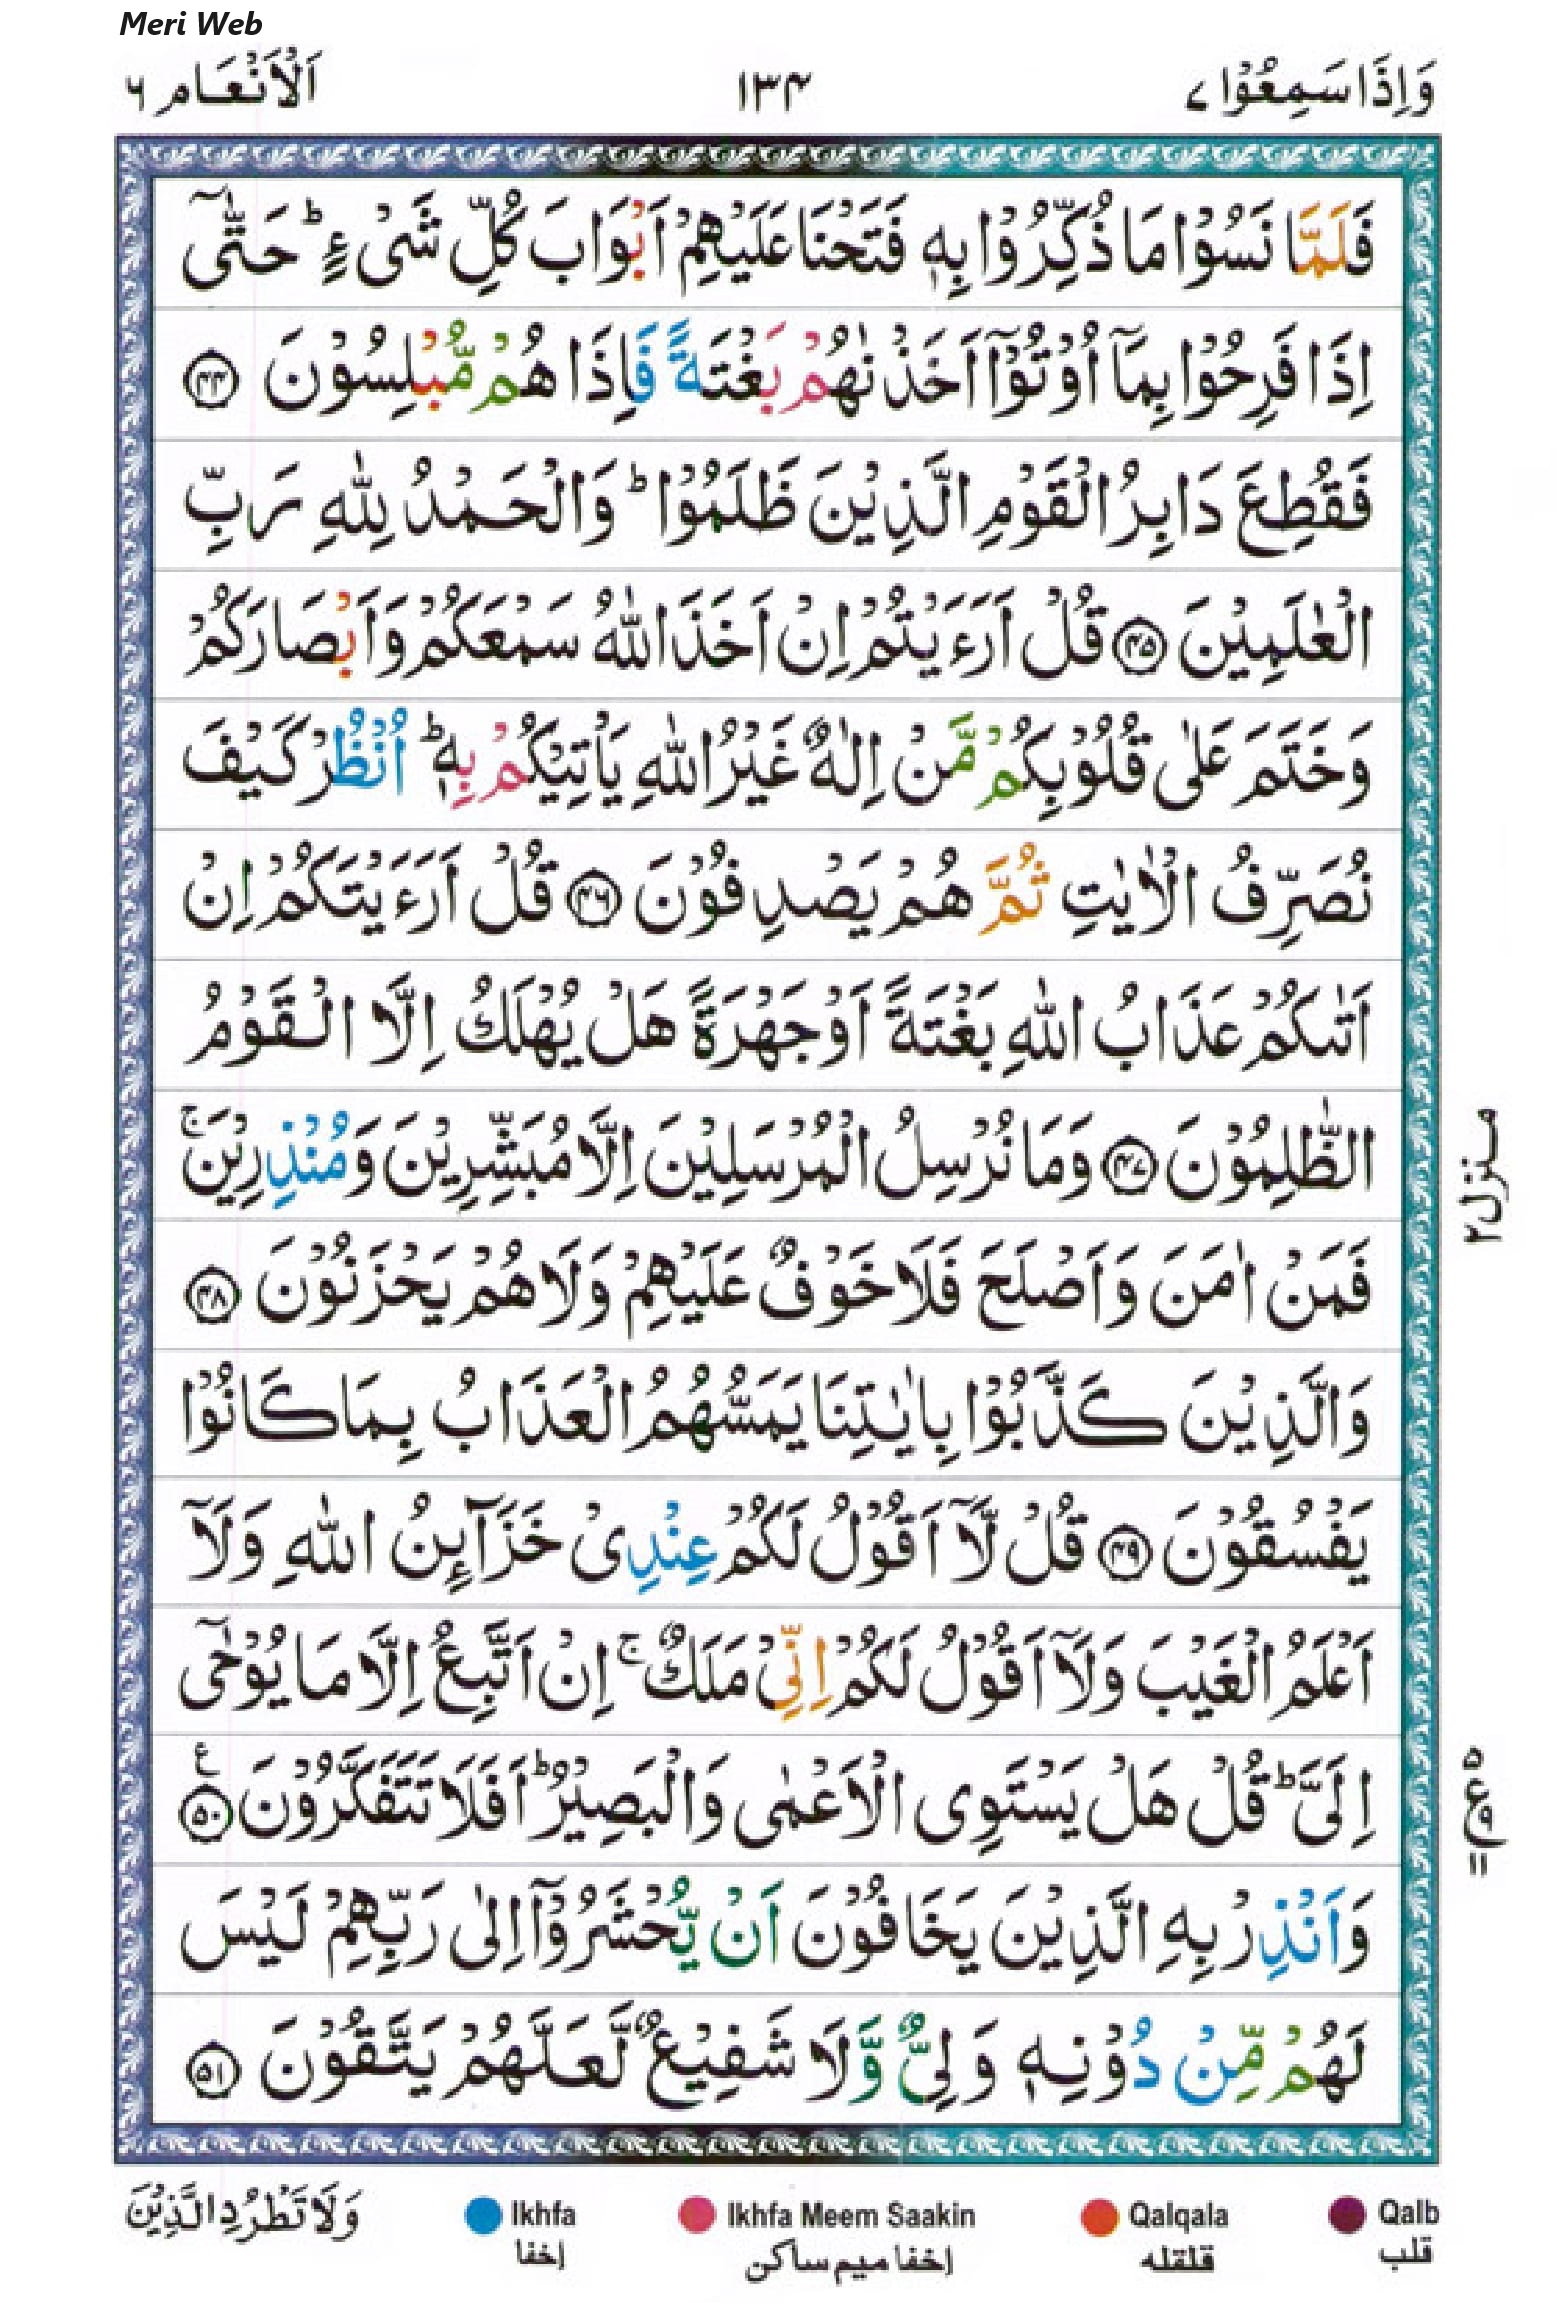 Meri Web
وَاِذَا سَمِعُوْا ۷
۱۳۴
اَلْاَنْعَام ۶
فَلَمَّا نَسُوْا مَا ذُكِّرُوْا بِهٖ فَتَحْنَا عَلَيْهِمْ اَبْوَابَ كُلِّ شَىْءٍ ؕ حَتّٰۤى
اِذَا فَرِحُوْا بِمَاۤ اُوْتُوْۤا اَخَذْنٰهُمْ بَغْتَةً فَاِذَا هُمْ مُّبْلِسُوْنَ ﴿۴۴﴾
فَقُطِعَ دَابِرُ الْقَوْمِ الَّذِيْنَ ظَلَمُوْا ؕ وَالْحَمْدُ لِلّٰهِ رَبِّ
الْعٰلَمِيْنَ ﴿۴۵﴾ قُلْ اَرَءَيْتُمْ اِنْ اَخَذَ اللّٰهُ سَمْعَكُمْ وَاَبْصَارَكُمْ
وَخَتَمَ عَلٰى قُلُوْبِكُمْ مَّنْ اِلٰهٌ غَيْرُ اللّٰهِ يَاْتِيْكُمْ بِهٖ ؕ اُنْظُرْ كَيْفَ
نُصَرِّفُ الْاٰيٰتِ ثُمَّ هُمْ يَصْدِفُوْنَ ﴿۴۶﴾ قُلْ اَرَءَيْتَكُمْ اِنْ
اَتٰٮكُمْ عَذَابُ اللّٰهِ بَغْتَةً اَوْ جَهْرَةً هَلْ يُهْلَكُ اِلَّا الْقَوْمُ
الظّٰلِمُوْنَ ﴿۴۷﴾ وَمَا نُرْسِلُ الْمُرْسَلِيْنَ اِلَّا مُبَشِّرِيْنَ وَمُنْذِرِيْنَ ۚ
فَمَنْ اٰمَنَ وَاَصْلَحَ فَلَا خَوْفٌ عَلَيْهِمْ وَلَا هُمْ يَحْزَنُوْنَ ﴿۴۸﴾
وَالَّذِيْنَ كَذَّبُوْا بِاٰيٰتِنَا يَمَسُّهُمُ الْعَذَابُ بِمَا كَانُوْا
يَفْسُقُوْنَ ﴿۴۹﴾ قُلْ لَّاۤ اَقُوْلُ لَكُمْ عِنْدِىْ خَزَآئِنُ اللّٰهِ وَلَاۤ
اَعْلَمُ الْغَيْبَ وَلَاۤ اَقُوْلُ لَكُمْ اِنِّىْ مَلَكٌ ۚ اِنْ اَتَّبِعُ اِلَّا مَا يُوْحٰۤى
اِلَىَّ ؕ قُلْ هَلْ يَسْتَوِى الْاَعْمٰى وَالْبَصِيْرُ ؕ اَفَلَا تَتَفَكَّرُوْنَ ﴿۵۰﴾ ع
وَاَنْذِرْ بِهِ الَّذِيْنَ يَخَافُوْنَ اَنْ يُّحْشَرُوْۤا اِلٰى رَبِّهِمْ لَيْسَ
لَهُمْ مِّنْ دُوْنِهٖ وَلِىٌّ وَّلَا شَفِيْعٌ لَّعَلَّهُمْ يَتَّقُوْنَ ﴿۵۱﴾
منزل ۲
۵
ع ۹
۱۱
وَلَا تَطْرُدِ الَّذِيْنَ
Ikhfa
إخفا
Ikhfa Meem Saakin
إخفا ميم ساكن
Qalqala
قلقله
Qalb
قلب